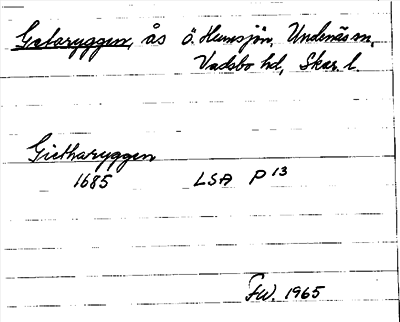 Getaryggen, ås Ö. Hunsjön, Undenäs sn,
Vadsbo hd, Skar. l.
Gietharyggen
1685 LSA P 13
FW. 1965